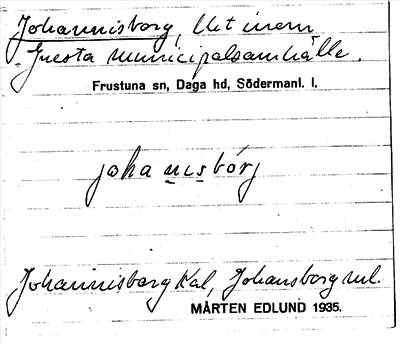 Johannisborg, lht inom
Gnesta municipalsamhälle.
Frustuna sn, Daga hd, Södermanl. l.
johanisbórj
Johannisborg Kal, Johansborg ml.
MÅRTEN EDLUND 1935.